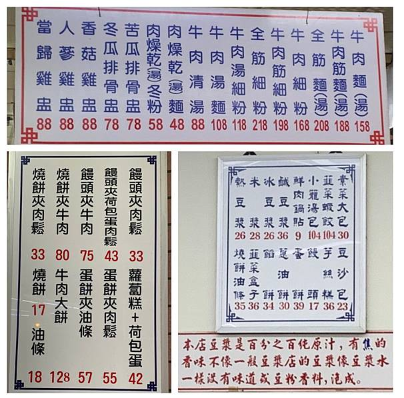 牛肉麵(湯) 158
牛肉筋麵(湯) 188
全筋麵(湯) 208
牛肉細粉 168
牛肉筋細粉 198
全筋細粉 218
牛肉湯細粉 118
牛肉湯麵 108
牛肉清湯 88
肉燥乾(湯)麵 48
肉燥乾(湯)冬粉 58
苦瓜排骨盅 78
冬瓜排骨盅 78
香菇雞盅 88
人蔘雞盅 88
當歸雞盅 88
饅頭夾肉鬆 33
饅頭夾荷包蛋肉鬆 43
饅頭夾牛肉 75
燒餅夾牛肉 80
燒餅夾肉鬆 33
蘿蔔糕+荷包蛋 42
蛋餅夾肉鬆 55
蛋餅夾油條 57
牛肉大餅 128
燒餅 17
油條 18
素菜大包 30
小籠湯包 104
鮮肉鍋貼 9
鹹豆漿 36
冰豆漿 28
米漿 26
軟豆漿 26
豆沙包 23
饅頭 17
蛋餅 39
韮菜盒子 36
燒餅油條 35
本店豆漿是百分之百純原汁，有焦的
香味不像一般豆漿店的豆漿像豆漿水
一樣沒有味道或豆粉香料，泡成。